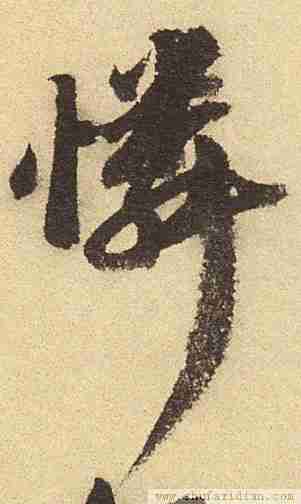 憐
www.shufazidian.com